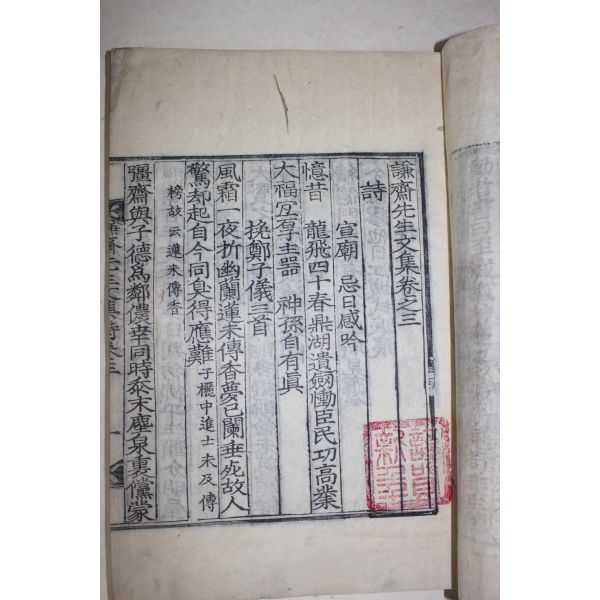 謙齋先生文集卷之三
詩
宣廟 忌日感吟
憶昔 龍飛四十春鼎湖遺劒慟臣民功高業
大福宜享主器 神孫自有眞
挽鄭子儀三首
風霜一夜折幽蘭蓮未傳香夢已闌垂死故人
驚却起自今同臭得應難子儀中進士未及傳
榜故云蓮未傳香
彊齋與子德爲鄰儂幸同時忝末塵泉裏儻蒙